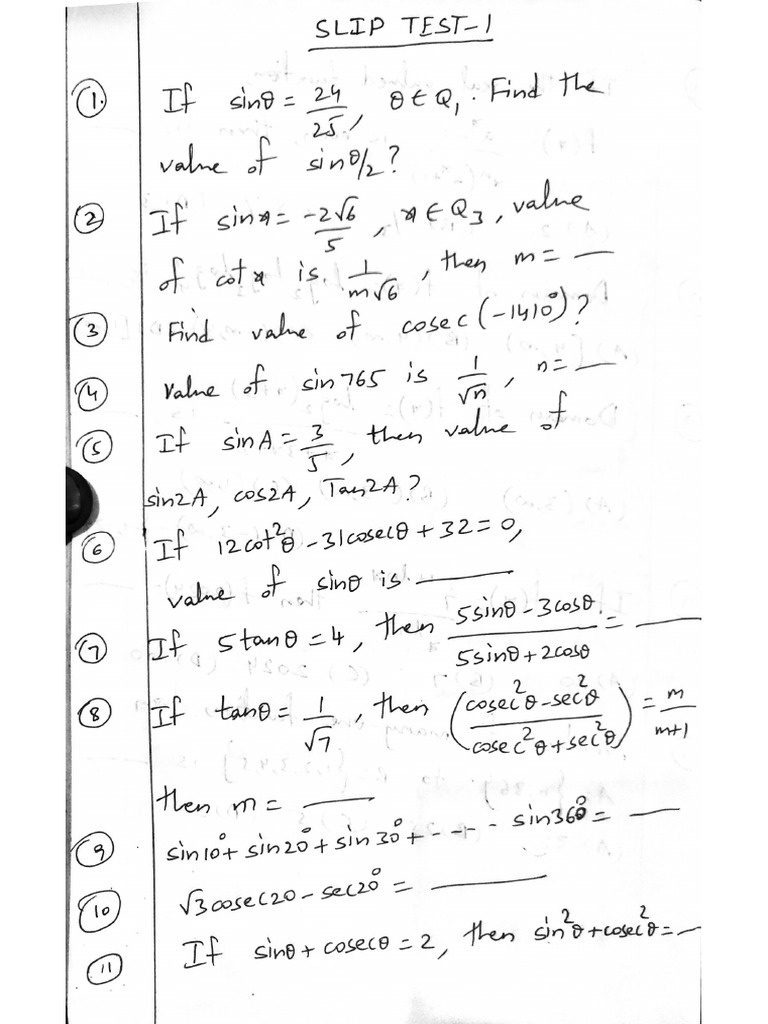 SLIP TEST-1
① If sinθ = 24/25, θ ∈ Q₁. Find the
value of sinθ/2?
② If sinx = -2√6/5, x ∈ Q₃, value
of cotx is 1/m√6, then m = —
③ Find value of cosec(-1410°)?
④ Value of sin765 is 1/√n, n = —
⑤ If sinA = 3/5, then value of
sin2A, cos2A, Tan2A?
⑥ If 12cot²θ - 31cosecθ + 32 = 0,
value of sinθ is ———
⑦ If 5tanθ = 4, then (5sinθ - 3cosθ)/(5sinθ + 2cosθ) = ———
⑧ If tanθ = 1/√7, then (cosec²θ - sec²θ / cosec²θ + sec²θ) = m/m+1
then m = ———
⑨ sin10° + sin20° + sin30° + ---- sin360° = ——
⑩ √3cosec20 - sec20° = ———
⑪ If sinθ + cosecθ = 2, then sin²θ + cosec²θ = —